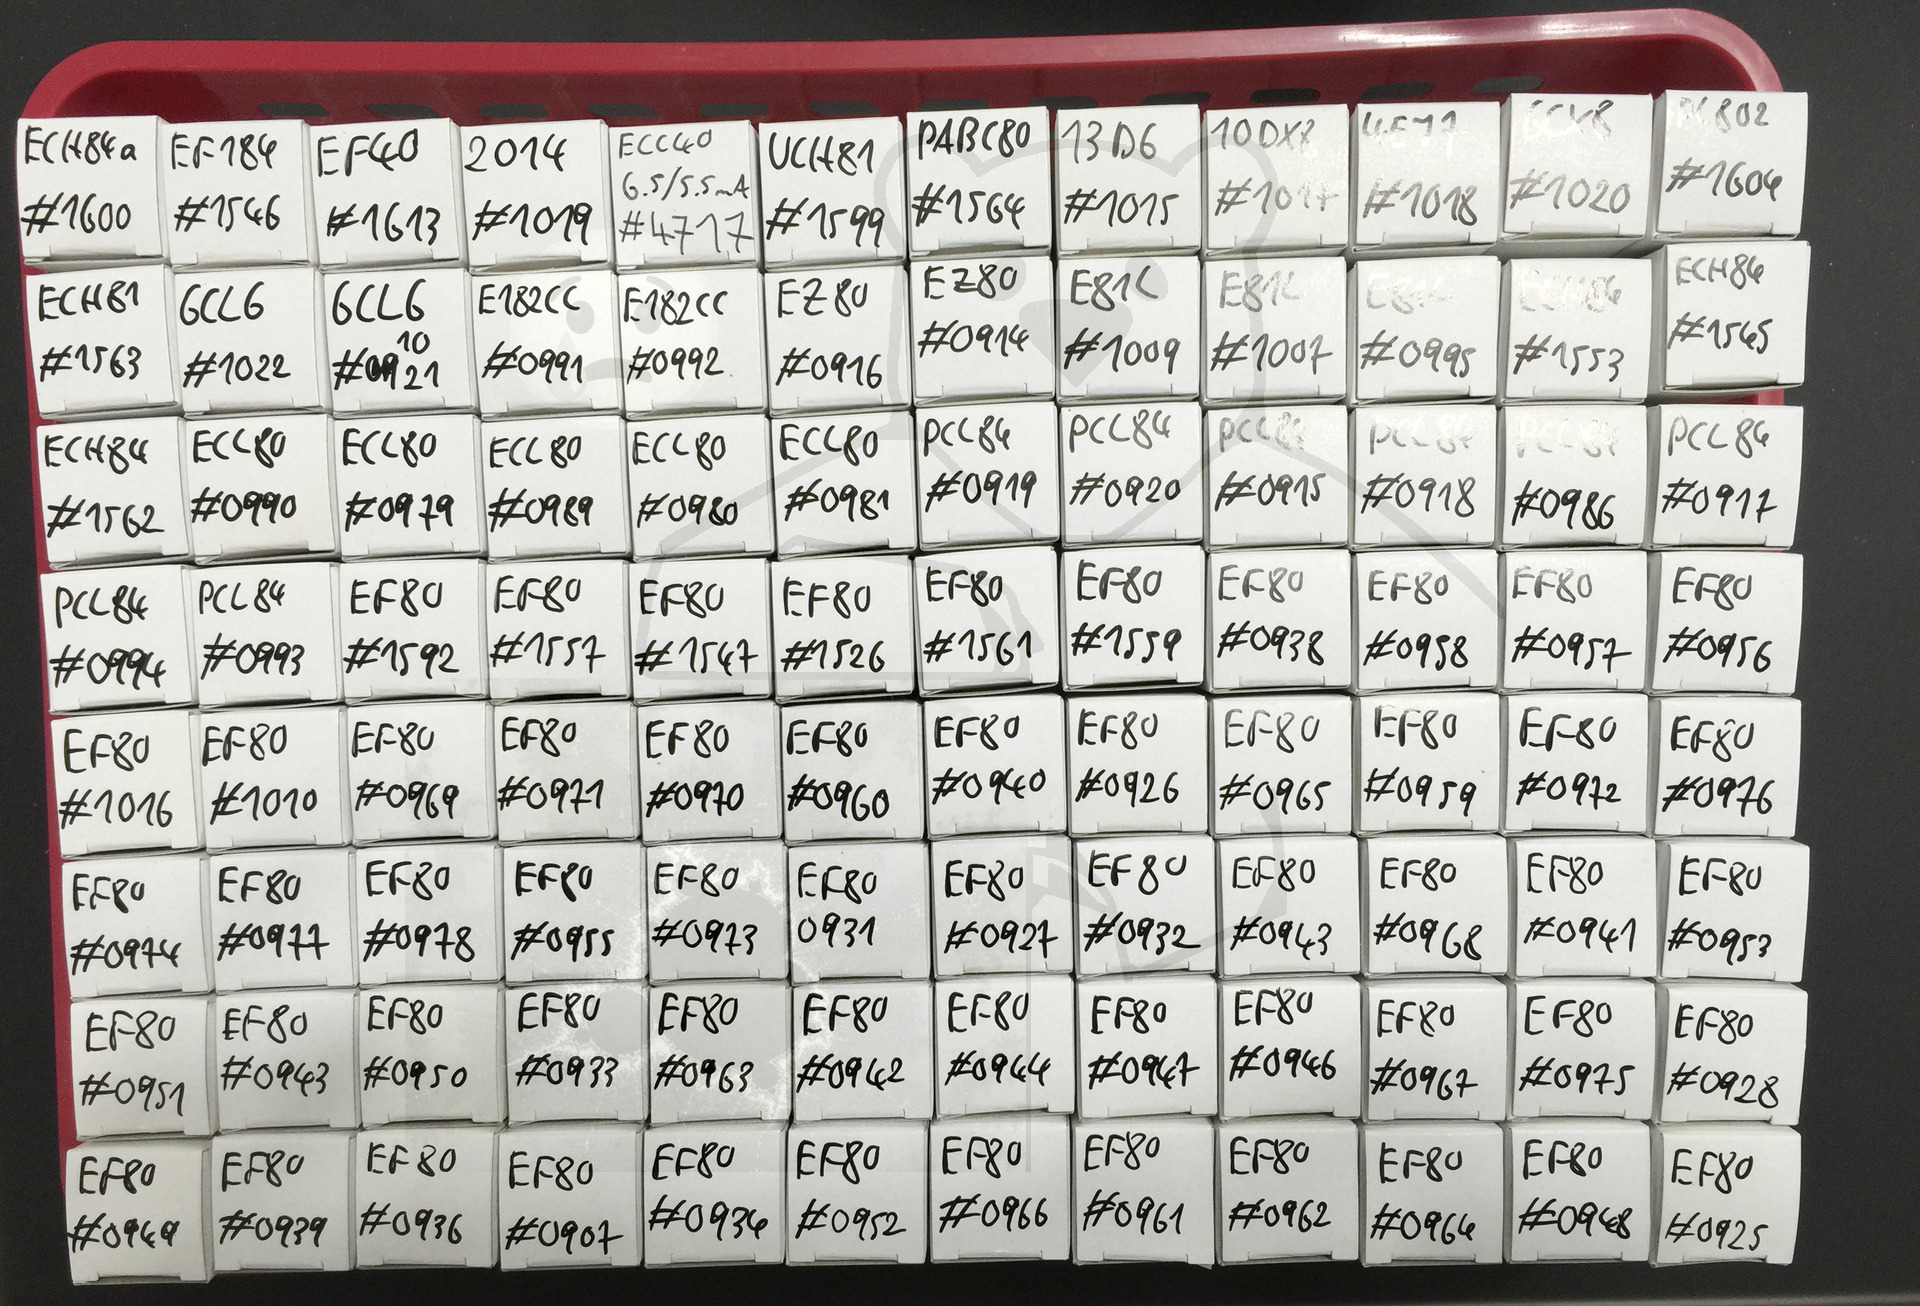 ECH84a EF184 EF40 2014 ECC40 UCH81 PABC80 13D6 10DX8
6.5/5.5mA
#1600 #1546 #1613 #1019 #4717 #1599 #1564 #1015 #1017 #1018 #1020 #1604
ECH81 6CL6 6CL6 E182CC E182CC EZ80 EZ80 E81L E81L E81L ECH84 ECH84
10
#1563 #1022 #0921 #0991 #0992 #0916 #0914 #1009 #1007 #0995 #1553 #1545
ECH84 ECL80 ECL80 ECL80 ECL80 ECL80 PCL84 PCL84 PCL84 PCL84 PCL84 PCL84
#1562 #0990 #0979 #0989 #0980 #0981 #0919 #0920 #0915 #0918 #0986 #0917
PCL84 PCL84 EF80 EF80 EF80 EF80 EF80 EF80 EF80 EF80 EF80 EF80
#0994 #0993 #1592 #1557 #1547 #1526 #1561 #1559 #0938 #0958 #0957 #0956
EF80 EF80 EF80 EF80 EF80 EF80 EF80 EF80 EF80 EF80 EF80 EF80
#1016 #1010 #0969 #0971 #0970 #0960 #0940 #0926 #0965 #0959 #0972 #0976
EF80 EF80 EF80 EF80 EF80 EF80 EF80 EF80 EF80 EF80 EF80 EF80
#0974 #0977 #0978 #0955 #0973 0931 #0927 #0932 #0943 #0968 #0941 #0953
EF80 EF80 EF80 EF80 EF80 EF80 EF80 EF80 EF80 EF80 EF80 EF80
#0951 #0943 #0950 #0933 #0963 #0942 #0944 #0947 #0946 #0967 #0975 #0928
EF80 EF80 EF80 EF80 EF80 EF80 EF80 EF80 EF80 EF80 EF80 EF80
#0949 #0939 #0936 #0907 #0934 #0952 #0966 #0961 #0962 #0964 #0948 #0925